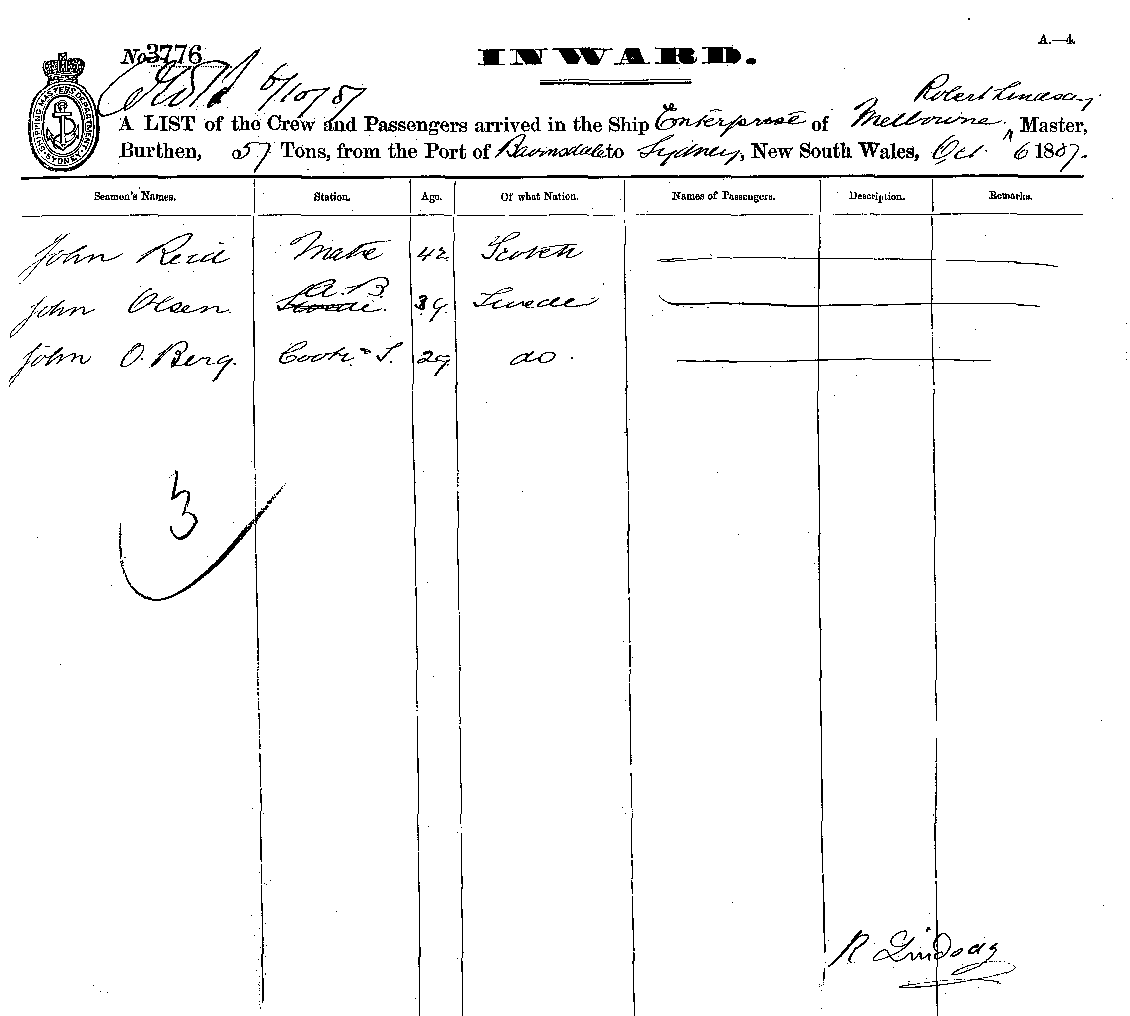 A.—4.
No 3776
INWARD.
6/10/87
Robert Lindsay
A LIST of the Crew and Passengers arrived in the Ship Enterprise of Melbourne ^ Master,
Burthen, 57 Tons, from the Port of Bairnsdale to Sydney, New South Wales, Oct 6 1887.
SHIPPING MASTER'S DEPARTMENT SYDNEY
Seamen's Names. Station. Age. Of what Nation. Names of Passengers. Description. Remarks.
John Reid Mate 42 Scotch
A.B.
John Olsen. Swede 39. Swede
John O. Berg. Cook & S. 29. do.
3
R Lindsay